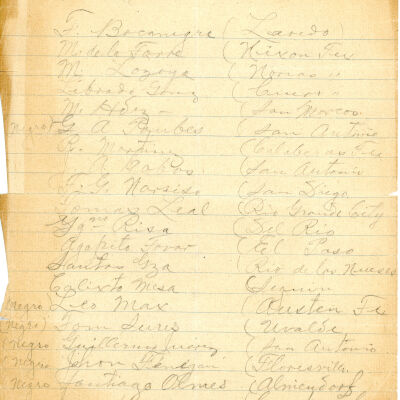 F. Bocanegra (Laredo)
M. de la Torre (Nixon Tex
M. Lozoya (Norias "
Librado Gonz (Cuero "
M. Hdez – (San Marcos
Negro) G. A. Rubes (San Antonio
R. Martinez (Calaberas Tex
J. A. Cabos (San Antonio
F. G. Narsiso (San Diego
Tomas Leal (Rio Grande City
Ygno Risa (Del Rio
Agapito Tovar (El Paso
Santos Gza (Rio de los Nueses
Calixto Mesa (Seguin
(Negro) Leo Max (Austen Tex
(Negro) Tom Suris (Uvalde
(Negro Guillermo Juarez (San Antonio
"Negro (Floresville
Negro Santiago Olmes (Almendorf